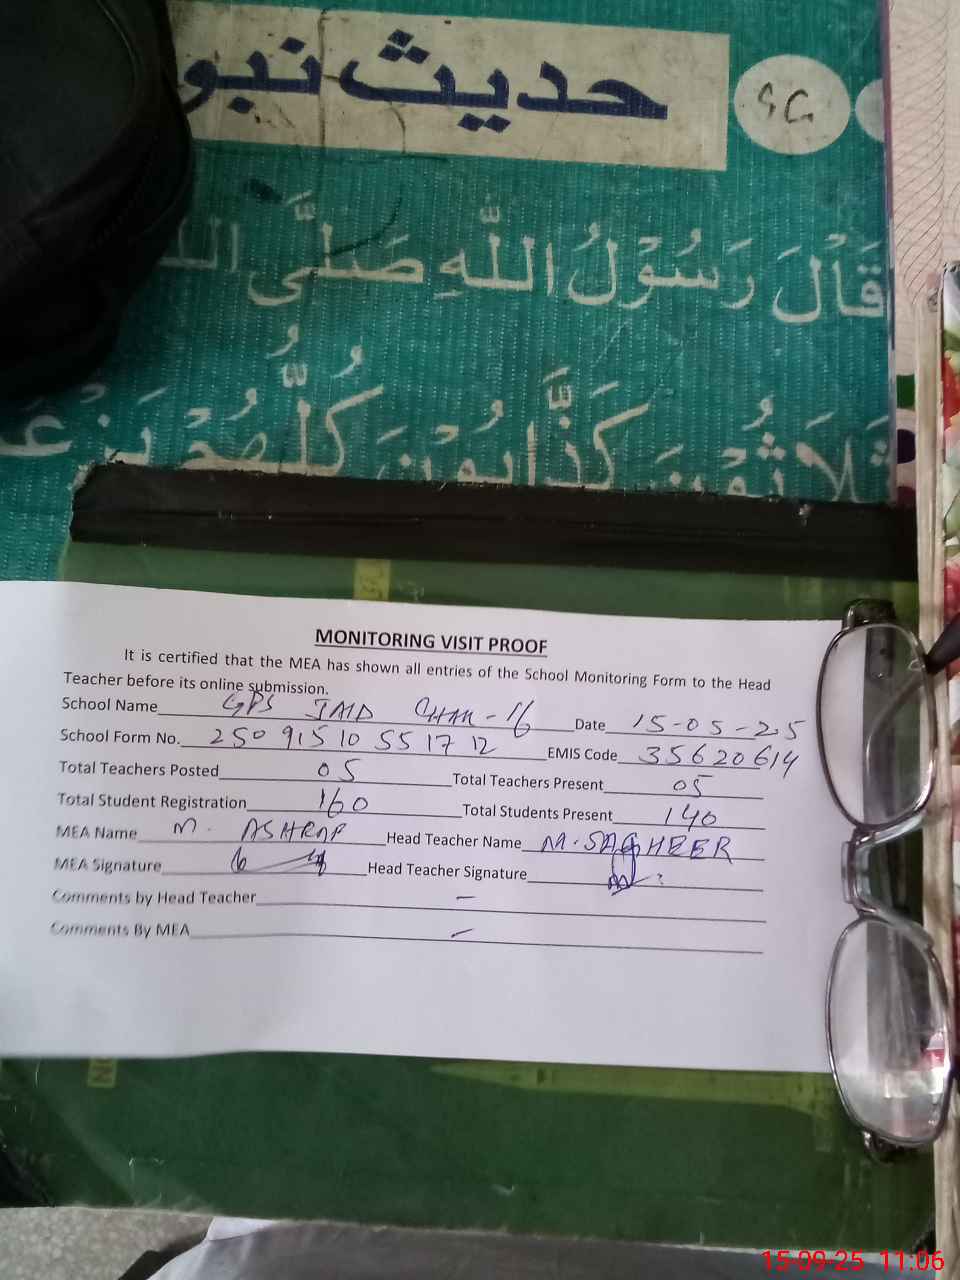 حديث نبو
SG
قَالَ رَسُوْلُ اللّٰهِ صَلَّى اللّٰ
ثَلَاثُوْنَ كَذَّابُوْنَ كُلُّهُمْ يَزْعَ
MONITORING VISIT PROOF
It is certified that the MEA has shown all entries of the School Monitoring Form to the Head
Teacher before its online submission.
School Name GPS IMD CHAK-16 Date 15-05-25
School Form No. 250 915 10 55 17 12 EMIS Code 35620614
Total Teachers Posted 05 Total Teachers Present 05
Total Student Registration 160 Total Students Present 140
MEA Name M. ASHRAF Head Teacher Name M. SAGHEER
MEA Signature Head Teacher Signature
Comments by Head Teacher –
Comments By MEA –
15-09-25 11:06